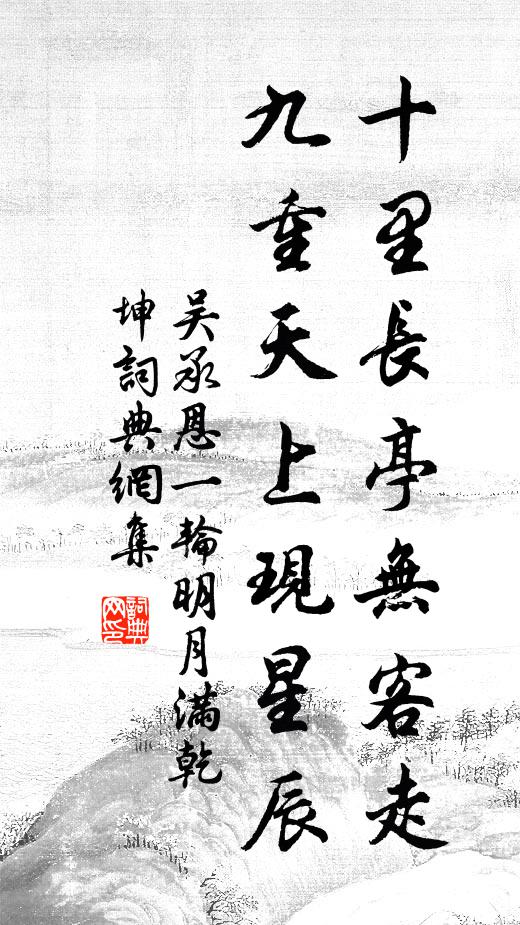 十里長亭無客走
九重天上現星辰
吴承恩一輪明月滿乾
坤詞典網集
詞典
网印